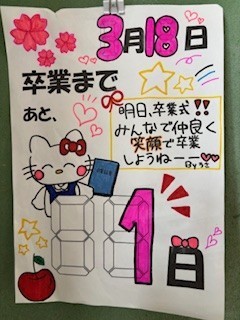 3月18日
卒業まで
あと、
明日、卒業式!!
みんなで仲良く
笑顔で卒業
しようねーー♥♥
Byうさ
1日